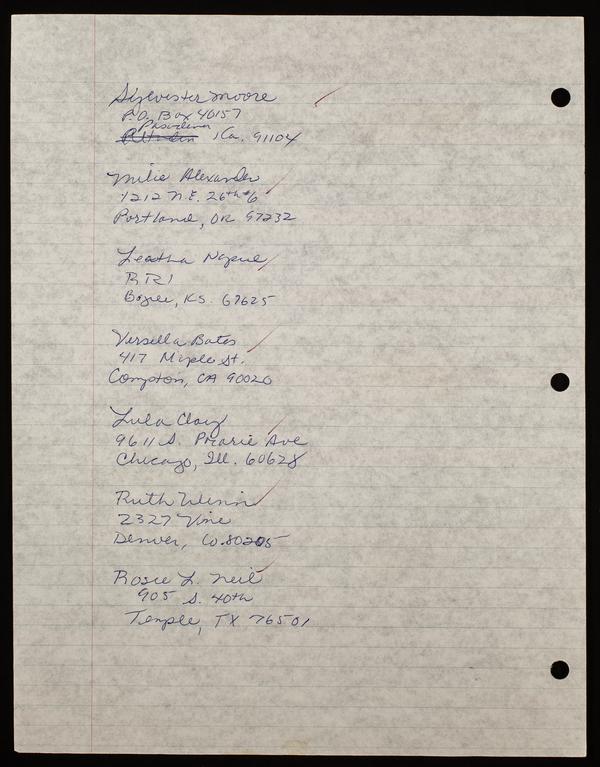 Sylvester Moore
P.O. Box 40157
Pasadena
, Ca. 91104
Milie Alexander
1212 N.E. 26th #6
Portland, OR 97232
Leatha Napue
RR1
Bogue, KS. 67625
Versella Bates
417 Maple St.
Compton, CA 90020
Lula Clay
9611 S. Prarie Ave
Chicago, Ill. 60628
Ruth Winn
2327 Vine
Denver, Co. 80205
Rosie L. Neil
905 S. 40th
Temple, TX 76501